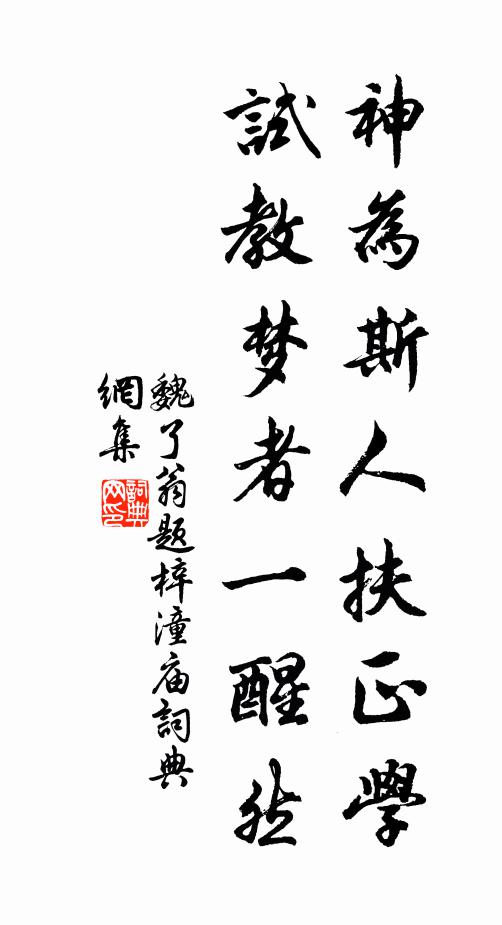 神為斯人扶正學
試教梦者一醒然
魏了翁题梓潼庙詞典
網集
詞典
网印